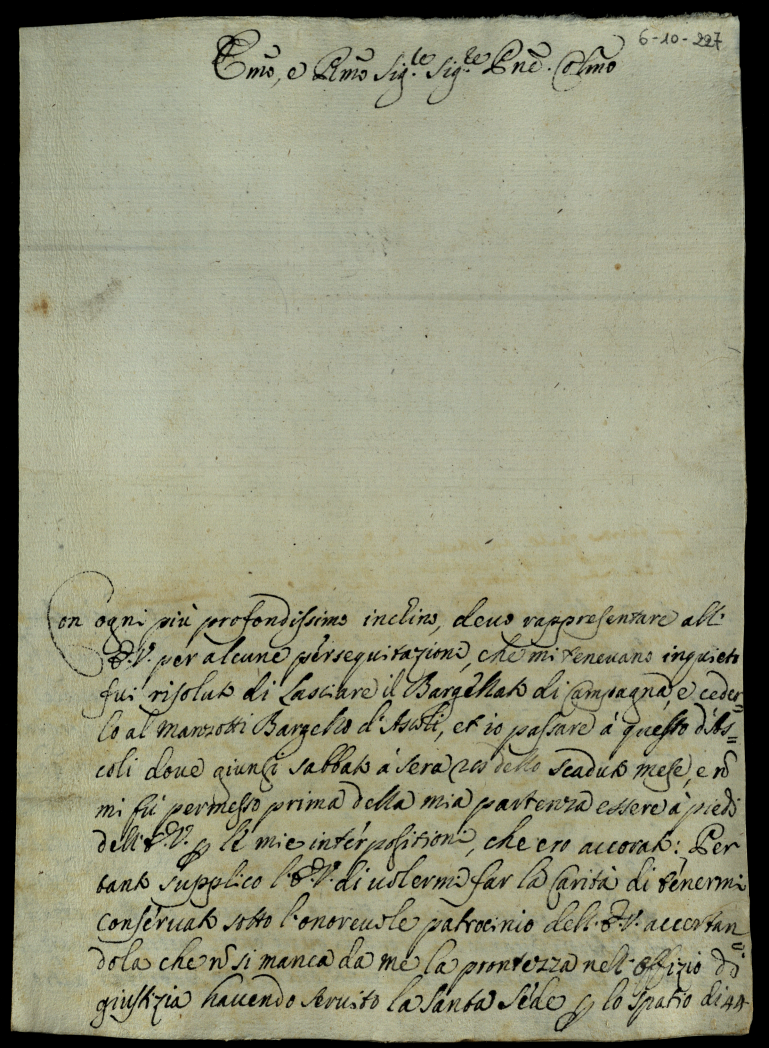 6-10-227
Emo, e Rmo Sig.re Sig.re Pne. Colmo
Con ogni più profondissimo inclino, devo rappresentare all'
E.V. per alcune persequitazioni, che mi tenevano inquieto
fui risoluto di Lasciare il Bargellato di Campagna, e ceder=
lo al Manzotti Bargello d'Ascoli, et io passare à questo d'As=
coli dove giunsi sabbato à sera dello scaduto mese, e nõ
mi fù permesso prima della mia partenza essere à piedi
dell'E.V. p le mie interpositioni, che ero accorato: Per
tanto supplico l'E.V. di volermi far la Carità di tenermi
conservato sotto l'onorevole patrocinio dell'E.V. accertan=
dola che nõ si manca da me la prontezza nell'offizio di
giustizia havendo servito la Santa Sede p lo spatio di 44